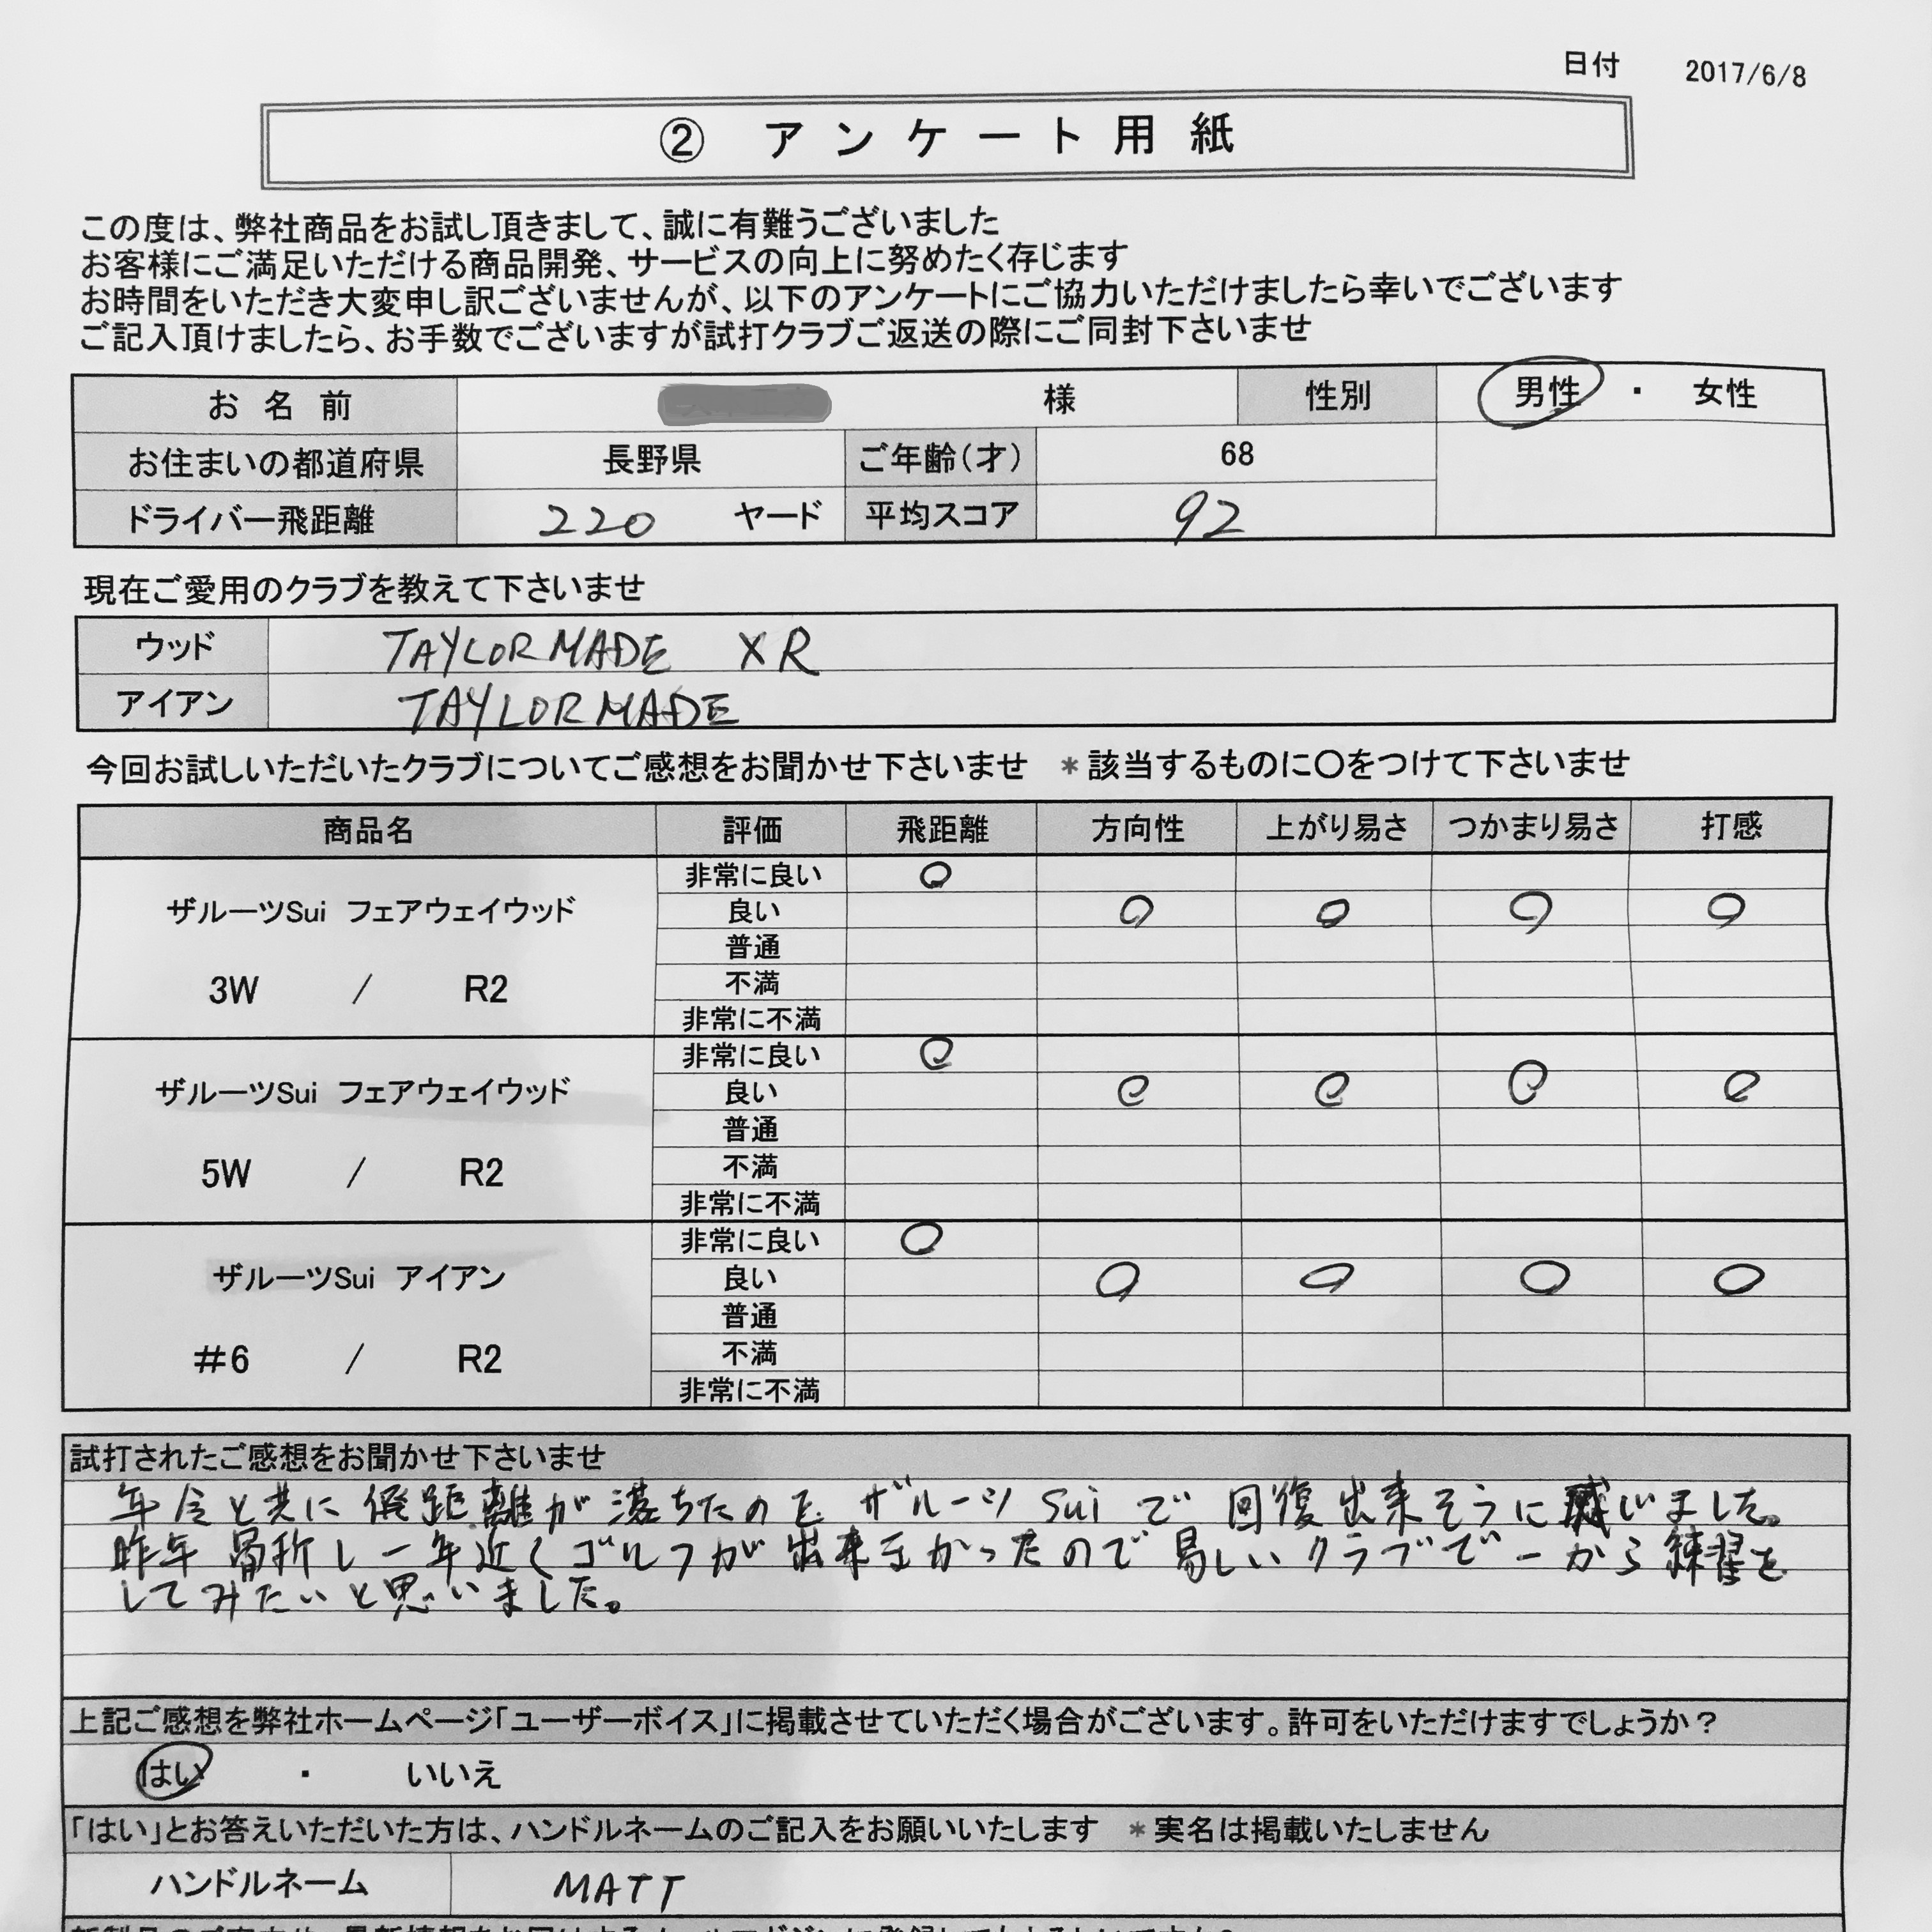 日付 2017/6/8
② アンケート用紙
この度は、弊社商品をお試し頂きまして、誠に有難うございました
お客様にご満足いただける商品開発、サービスの向上に努めたく存じます
お時間をいただき大変申し訳ございませんが、以下のアンケートにご協力いただけましたら幸いでございます
ご記入頂けましたら、お手数でございますが試打クラブご返送の際にご同封下さいませ
お名前 様 性別 男性 ・ 女性
お住まいの都道府県 長野県 ご年齢(才) 68
ドライバー飛距離 220 ヤード 平均スコア 92
現在ご愛用のクラブを教えて下さいませ
ウッド TAYLOR MADE XR
アイアン TAYLOR MADE
今回お試しいただいたクラブについてご感想をお聞かせ下さいませ *該当するものに〇をつけて下さいませ
商品名 評価 飛距離 方向性 上がり易さ つかまり易さ 打感
ザルーツSui フェアウェイウッド
3W / R2
非常に良い ○
良い ○ ○ ○ ○
普通
不満
非常に不満
ザルーツSui フェアウェイウッド
5W / R2
非常に良い ○
良い ○ ○ ○ ○
普通
不満
非常に不満
ザルーツSui アイアン
#6 / R2
非常に良い ○
良い ○ ○ ○ ○
普通
不満
非常に不満
試打されたご感想をお聞かせ下さいませ
年令と共に飛距離が落ちたのをザルーツSuiで回復出来そうに感じました。
昨年骨折し一年近くゴルフが出来なかったので易しいクラブで一から練習を
してみたいと思いました。
上記ご感想を弊社ホームページ「ユーザーボイス」に掲載させていただく場合がございます。許可をいただけますでしょうか?
はい ・ いいえ
「はい」とお答えいただいた方は、ハンドルネームのご記入をお願いいたします *実名は掲載いたしません
ハンドルネーム MATT